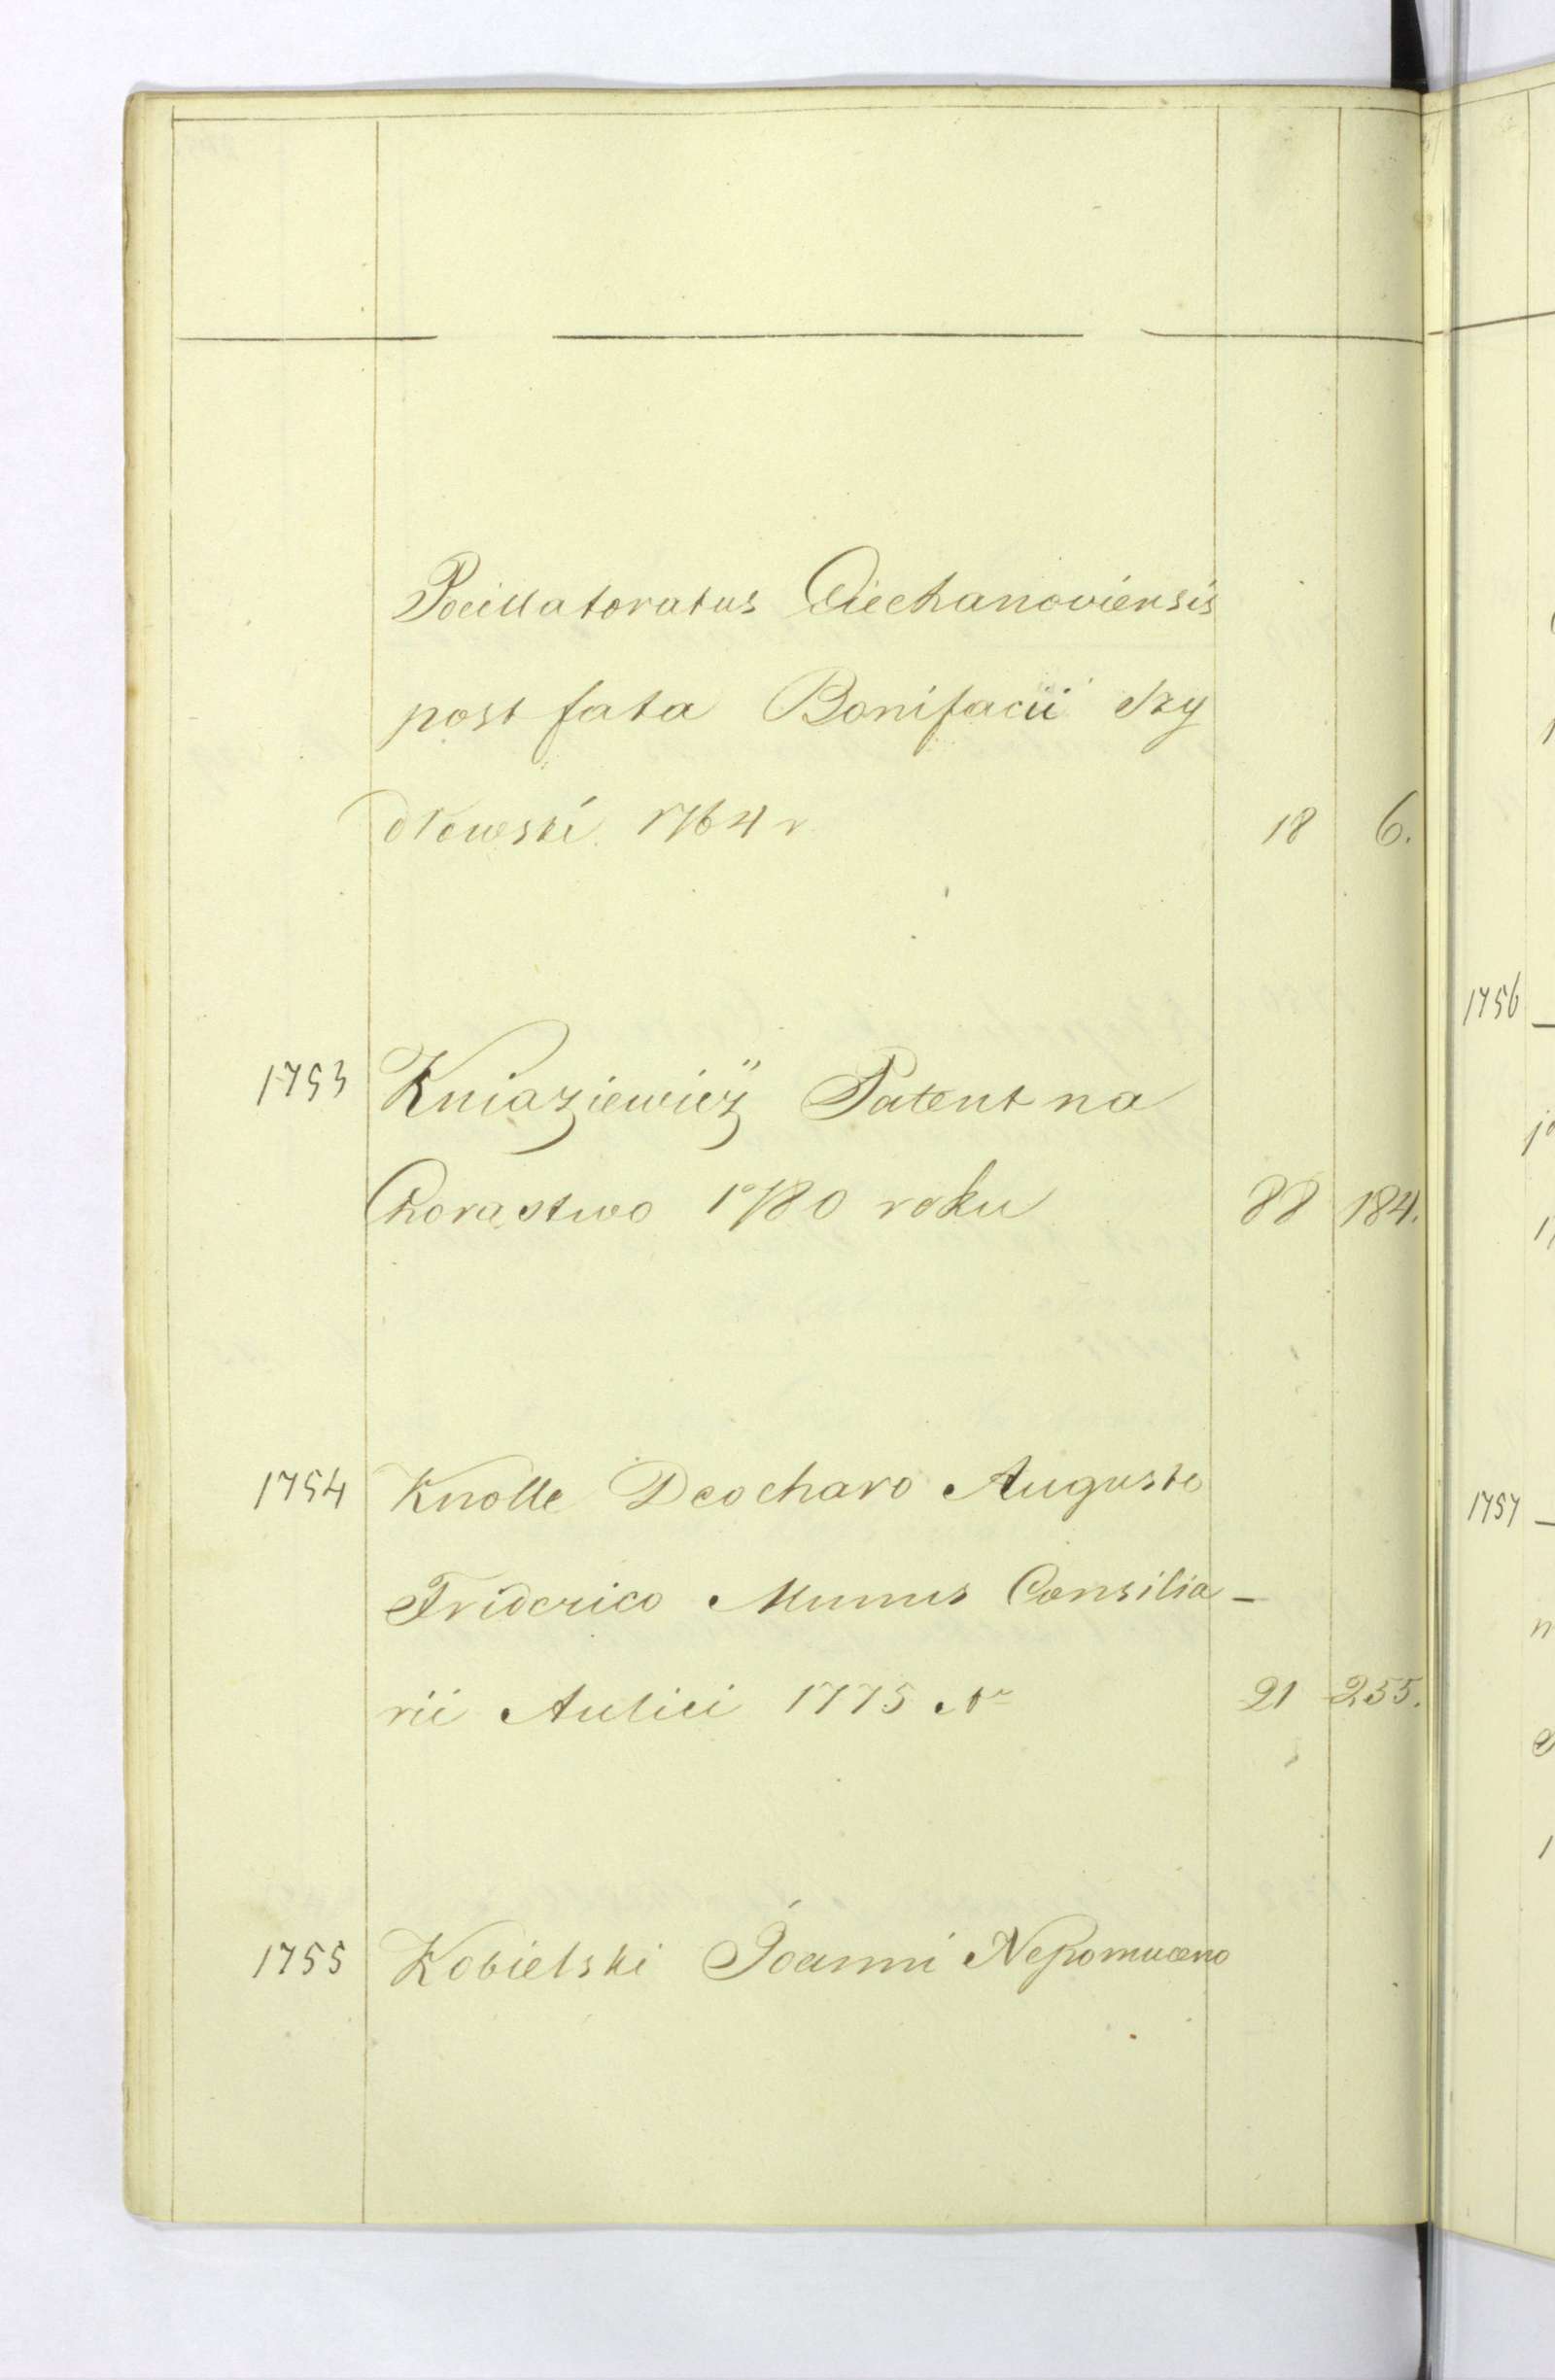 Pocillatoratus Ciechanoviensis
post fata Bonifacii Szy
dłowski 1764 r 18 6.
1753 Kniaziewicz Patent na
Chorąstwo 1780 roku 88 184.
1754 Knolle Deocharo Augusto
Friderico Munus Consilia-
rii Aulici 1775 21 255.
1755 Kobielski Joanni Nepomuceno
1756
1757